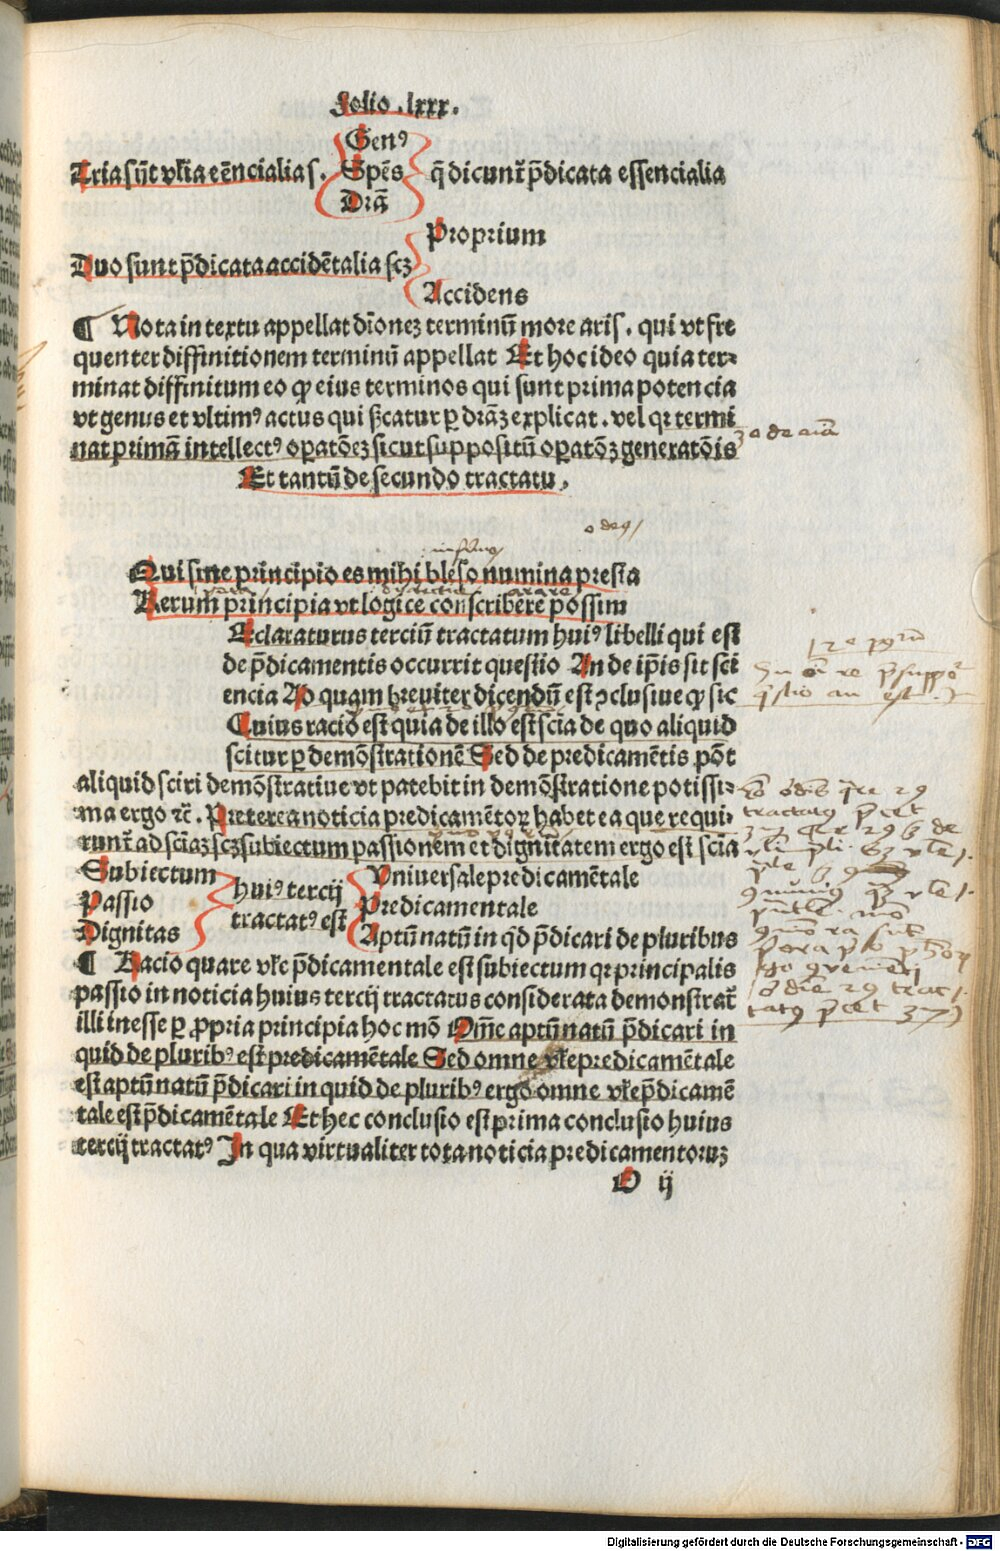 Folio .lxxx.
Genꝰ
Tria sūt vlia eēncialia s. Spēs q̄ dicunt̄ p̄dicata essencialia
Dr̄a
Proprium
Duo sunt p̄dicata accidētalia scꝫ
Accidens
¶ Nota in textu appellat dīoneꝫ terminū more aris. qui vt fre
quenter diffinitionem terminū appellat Et hoc ideo quia ter⸗
minat diffinitum eo ꝙ eius terminos qui sunt prima potencia
vt genus et vltimꝰ actus qui ſicatur ꝑ dr̄aꝫ explicat. vel qꝛ termi
nat primā intellectꝰ oꝑatōeꝫ sicut suppositū oꝑatōꝫ generatōis
Et tantū de secundo tractatu.
Qui sine principio es mihi bleso numina presta
Rerum principia vt logice conscribere possim
Eclaraturus terciū tractatum huiꝰ libelli qui est
de p̄dicamentis occurrit questio An de ip̄is sit sci
encia Ad quam breuiter dicendū est ꝯclusiue ꝙ sic
Cuius racio est quia de illo est scīa de quo aliquid
scitur ꝑ demōstrationē Sed de predicamētis pōt
aliquid sciri demōstratiue vt patebit in demōstratione potissi⸗
ma ergo ꝛč. Preterea noticia predicamētoꝝ habet ea que requi⸗
runt̄ ad sciaꝫ scꝫ subiectum passionem et dignitatem ergo est scīa
Subiectum Vniuersale predicamētale
Passio huiꝰ tercij tractatꝰ est Predicamentale
Dignitas Aptū natū in qd̄ p̄dicari de pluribus
¶ Racio quare vlc p̄dicamentale est subiectum qꝛ principalis
passio in noticia huius tercij tractatus considerata demonstrat̄
illi inesse ꝑ ꝓpria principia hoc mō Om̄e aptū natū p̄dicari in
quid de pluribꝰ est predicamētale Sed omne vle predicamētale
est aptū natū p̄dicari in quid de pluribꝰ ergo omne vle p̄dicamē
tale est p̄dicamētale Et hec conclusio est prima conclusio huius
tercij tractatꝰ In qua virtualiter tota noticia predicamentoruꝫ
O ij
Digitalisierung gefördert durch die Deutsche Forschungsgemeinschaft - DFG